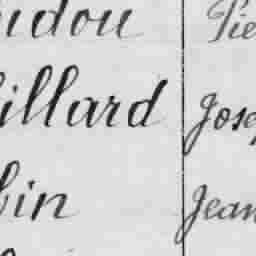 udou Pie
illard Jose
bin Jean